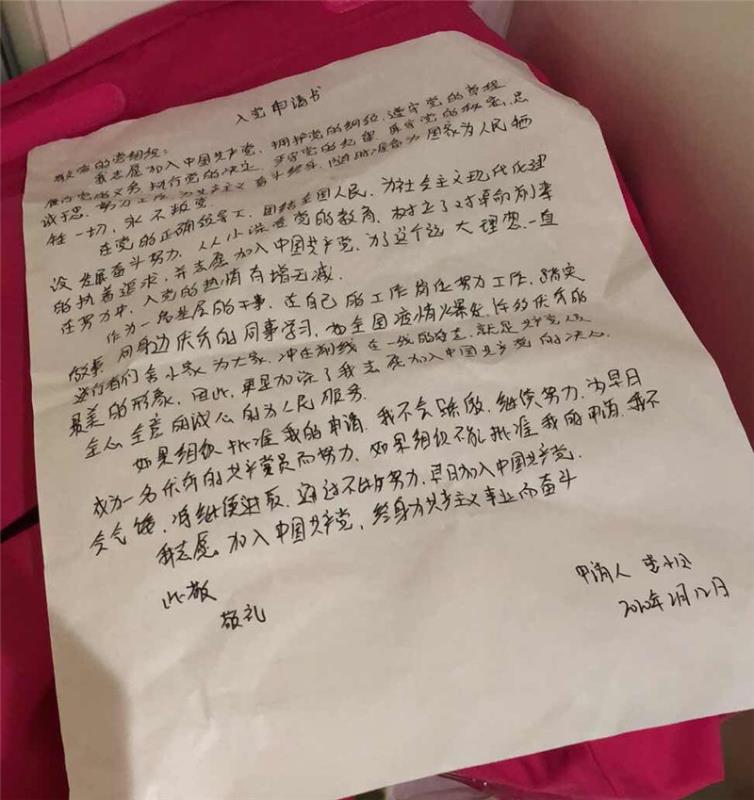 入党申请书
敬爱的党组织:
我志愿加入中国共产党,拥护党的纲领,遵守党的章程
履行党的义务,执行党的决定,严守党的纪律,保守党的秘密,忠
诚于党,努力工作,为共产主义奋斗终身,随时准备为国家为人民牺
牲一切,永不叛党
在党的正确领导下,团结全国人民,为社会主义现代化建
设发展奋斗努力,从小深受党的教育,树立了对革命前辈
的执着追求,并志愿加入中国共产党,为了这个远大理想一直
在努力中,入党的热情有增无减.
作为一名基层的干事,在自己的工作岗位努力工作,踏实
做事,同身边优秀的同事学习,如全国疫情爆发,许多优秀的
逆行者们舍小家为大家,冲在前线在一线的存在,就是共产党人
最美的形象,因此,更是加深了我志愿加入中国共产党的决心.
全心全意的诚心的为人民服务.
如果组织批准我的申请,我不会骄傲,继续努力,为早日
成为一名优秀的共产党员而努力,如果组织不能批准我的申请,我不
会气馁,将继续进取,通过不断努力,早日加入中国共产党.
我志愿加入中国共产党,终身为共产主义事业而奋斗
此致
敬礼
申请人 李
2020年2月12日